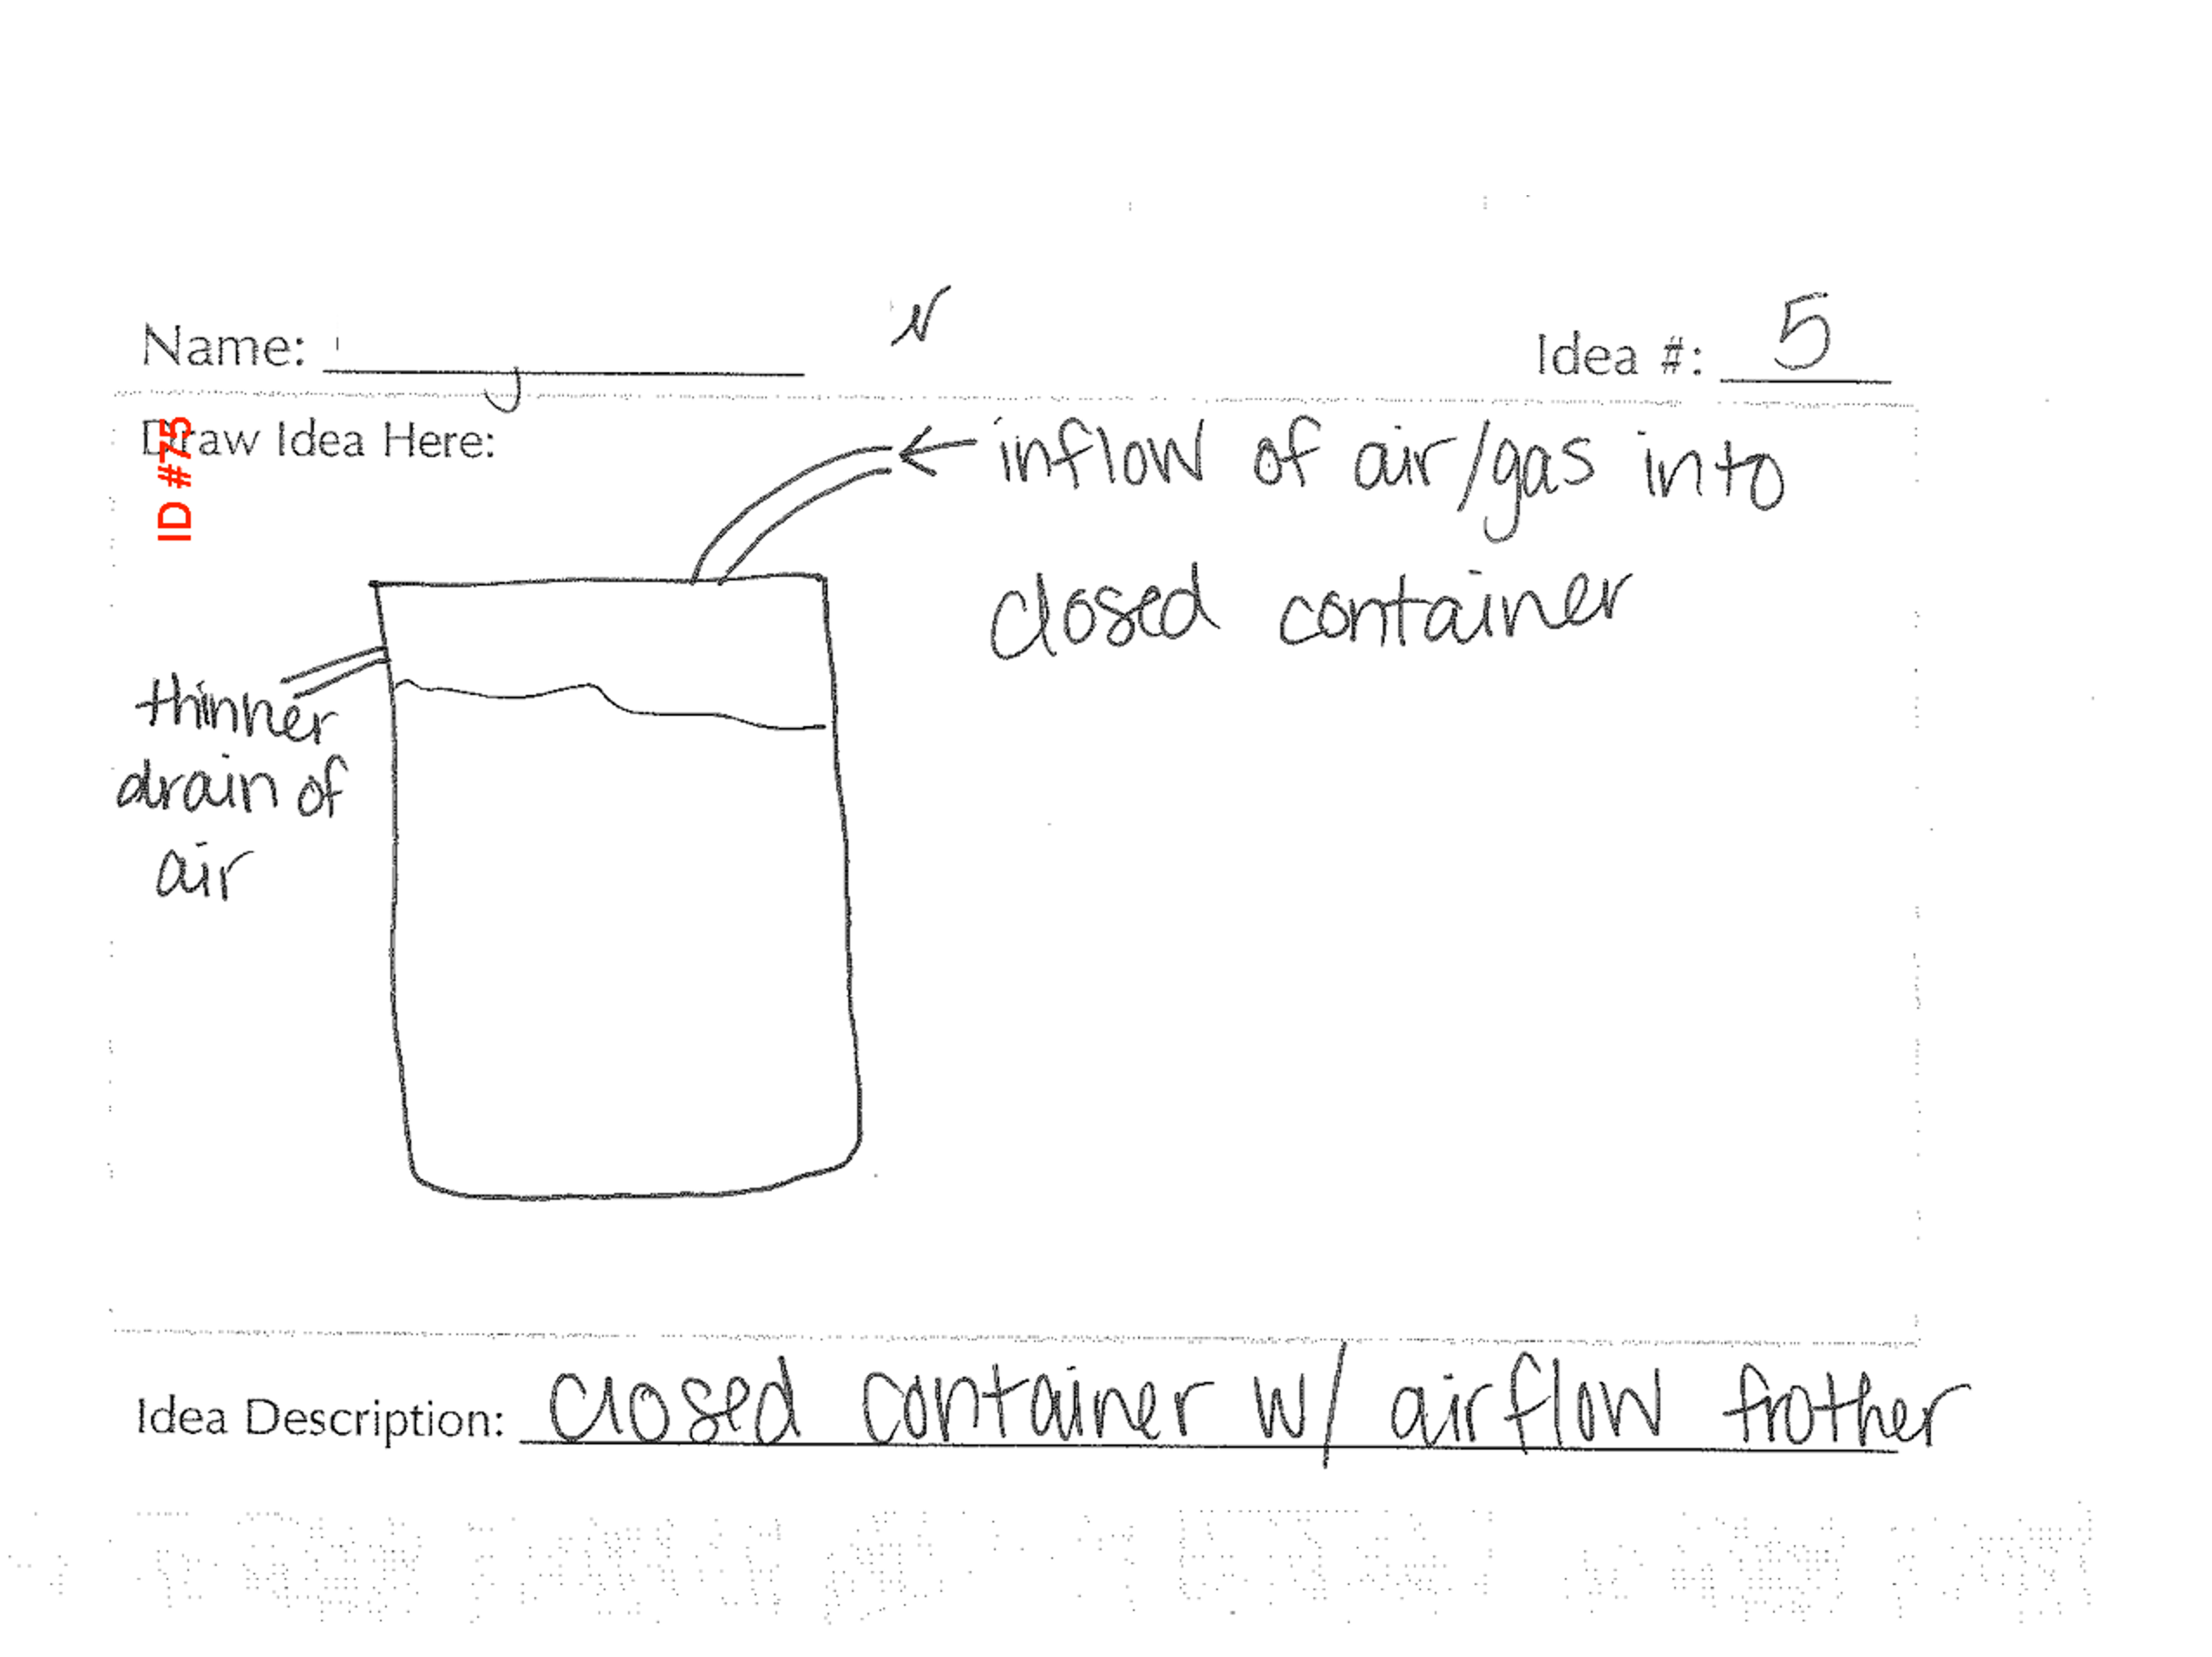 Name:
Idea #: 5
Draw Idea Here:
ID #75
inflow of air/gas into
closed container
thinner
drain of
air
Idea Description: closed container w/ airflow frother